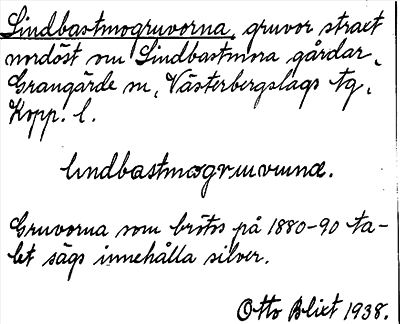 Lindbastmogruvorna, gruvor strax
nordöst om Lindbastmora gårdar,
Grangärde sn, Västerbergslags tg,
Kopp. l.
lindbastmogruvuna.
Gruvorna som bröts på 1880-90 ta-
let sägs innehålla silver.
Otto Blixt 1938.